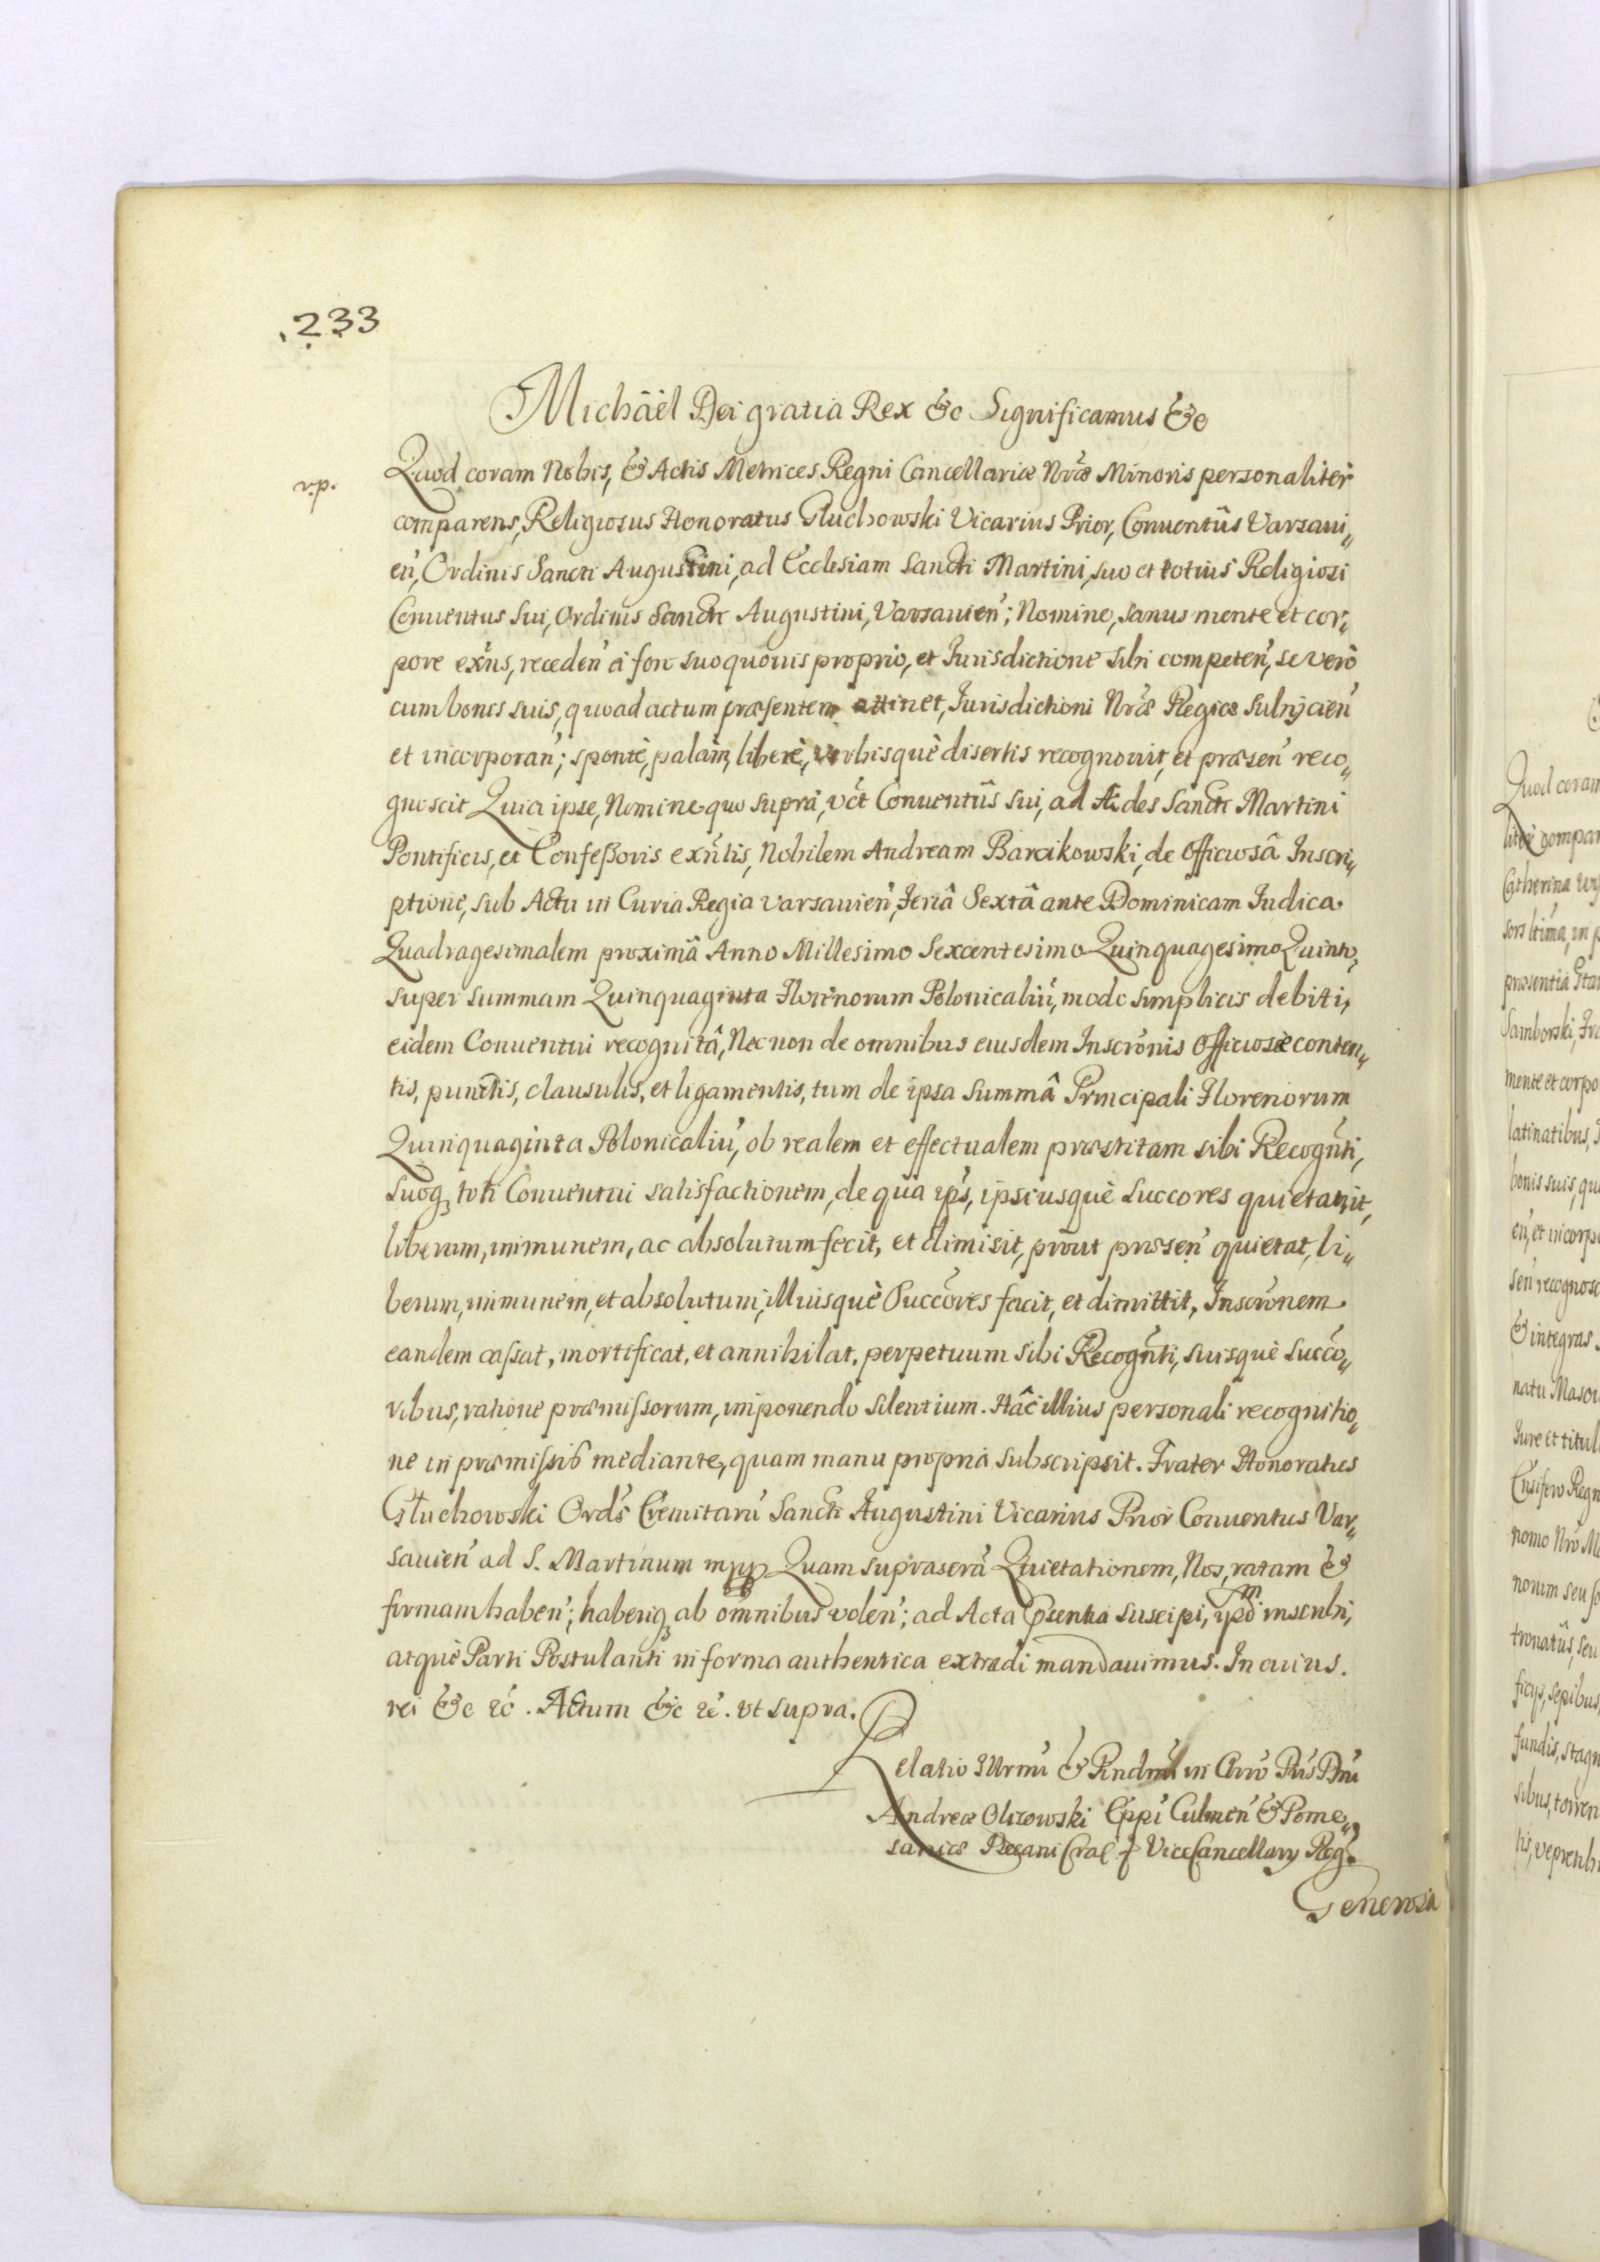 233
Michäel Dei gratia Rex &c Significamus &c
Quod coram Nobis, & Actis Metrices Regni Cancellariæ Nræ Minoris personaliter
comparens, Religiosus Honoratus Głuchowski Vicarius Prior, Conventûs Varsavi„
en', Ordinis Sancti Augustini, ad Ecclesiam Sancti Martini, suo et totius Religiosi
Conventus sui, Ordinis Sancti Augustini, Varsavien'; Nomine, sanus mente et cor„
pore exñs, receden' à foro suo quovis proprio, et Jurisdictione sibi competen', se verò
cum bonis suis, quoad actum præsentem attinet, Jurisdictioni Nræ Regiæ subijcien'
et incorporan'; spontè, palàm, liberè, verbisquè disertis recognovit, et præsen' reco„
gnoscit Quia ipse, Nomine quo suprà, vct Conventûs sui, ad Ædes Sancti Martini
Pontificis, et Confeßoris exñtis, Nobilem Andream Barcikowski, de Officiosâ Inscri„
ptione, sub Actu in Curia Regia Varsavien', Feriâ Sextâ ante Dominicam Judica
Quadragesimalem proximâ Anno Millesimo Sexcentesimo Quinquagesimo Quinto,
super summam Quinquaginta Florenorum Polonicaliu', modo simplicis debiti,
eidem Conventui recognitâ, Nec non de omnibus eiusdem Inscronis Officiosæ conten„
tis, punctis, clausulis, et ligamentis, tum de ipsa summâ Principali Florenorum
Quinquaginta Polonicaliu', ob realem et effectualem præstitam sibi Recognti,
suoq3 toti Conventui satisfactionem, de qua ips, ipsiusquè succores quietavit,
liberum, immunem, ac absolutum fecit, et dimisit, prout præsen' quietat, li„
berum, immunem, et absolutum, illiusquè Succores facit, et dimittit, Inscronem
eandem caſsat, mortificat, et annihilat, perpetuum sibi Recognti, suisquè succo„
ribus, ratione præmiſsorum, imponendo silentium. Hâc illius personali recognitio„
ne in præmiſsis mediante, quam manu propria subscripsit. Frater Honoratus
Głuchowski Ords Eremitaru' Sancti Augustini Vicarius Prior Conventus Var„
savien' ad S. Martinum mpp Quam suprascrã Quietationem, Nos, ratam &
firmam haben'; haberiq3 ab omnibus volen'; ad Acta præsentia suscipi, inscribi,
atquè Parti Postulanti in forma authentica extradi mandavimus. In cuius
rei &c &c. Actum &c &c. ut supra.
Relatio Illrmi & Rndmi in Chro Pris Dni
Andreæ Olszowski Eppi Culmen' & Pome„
saniæ Vice Cancellary Reg.
Generosa